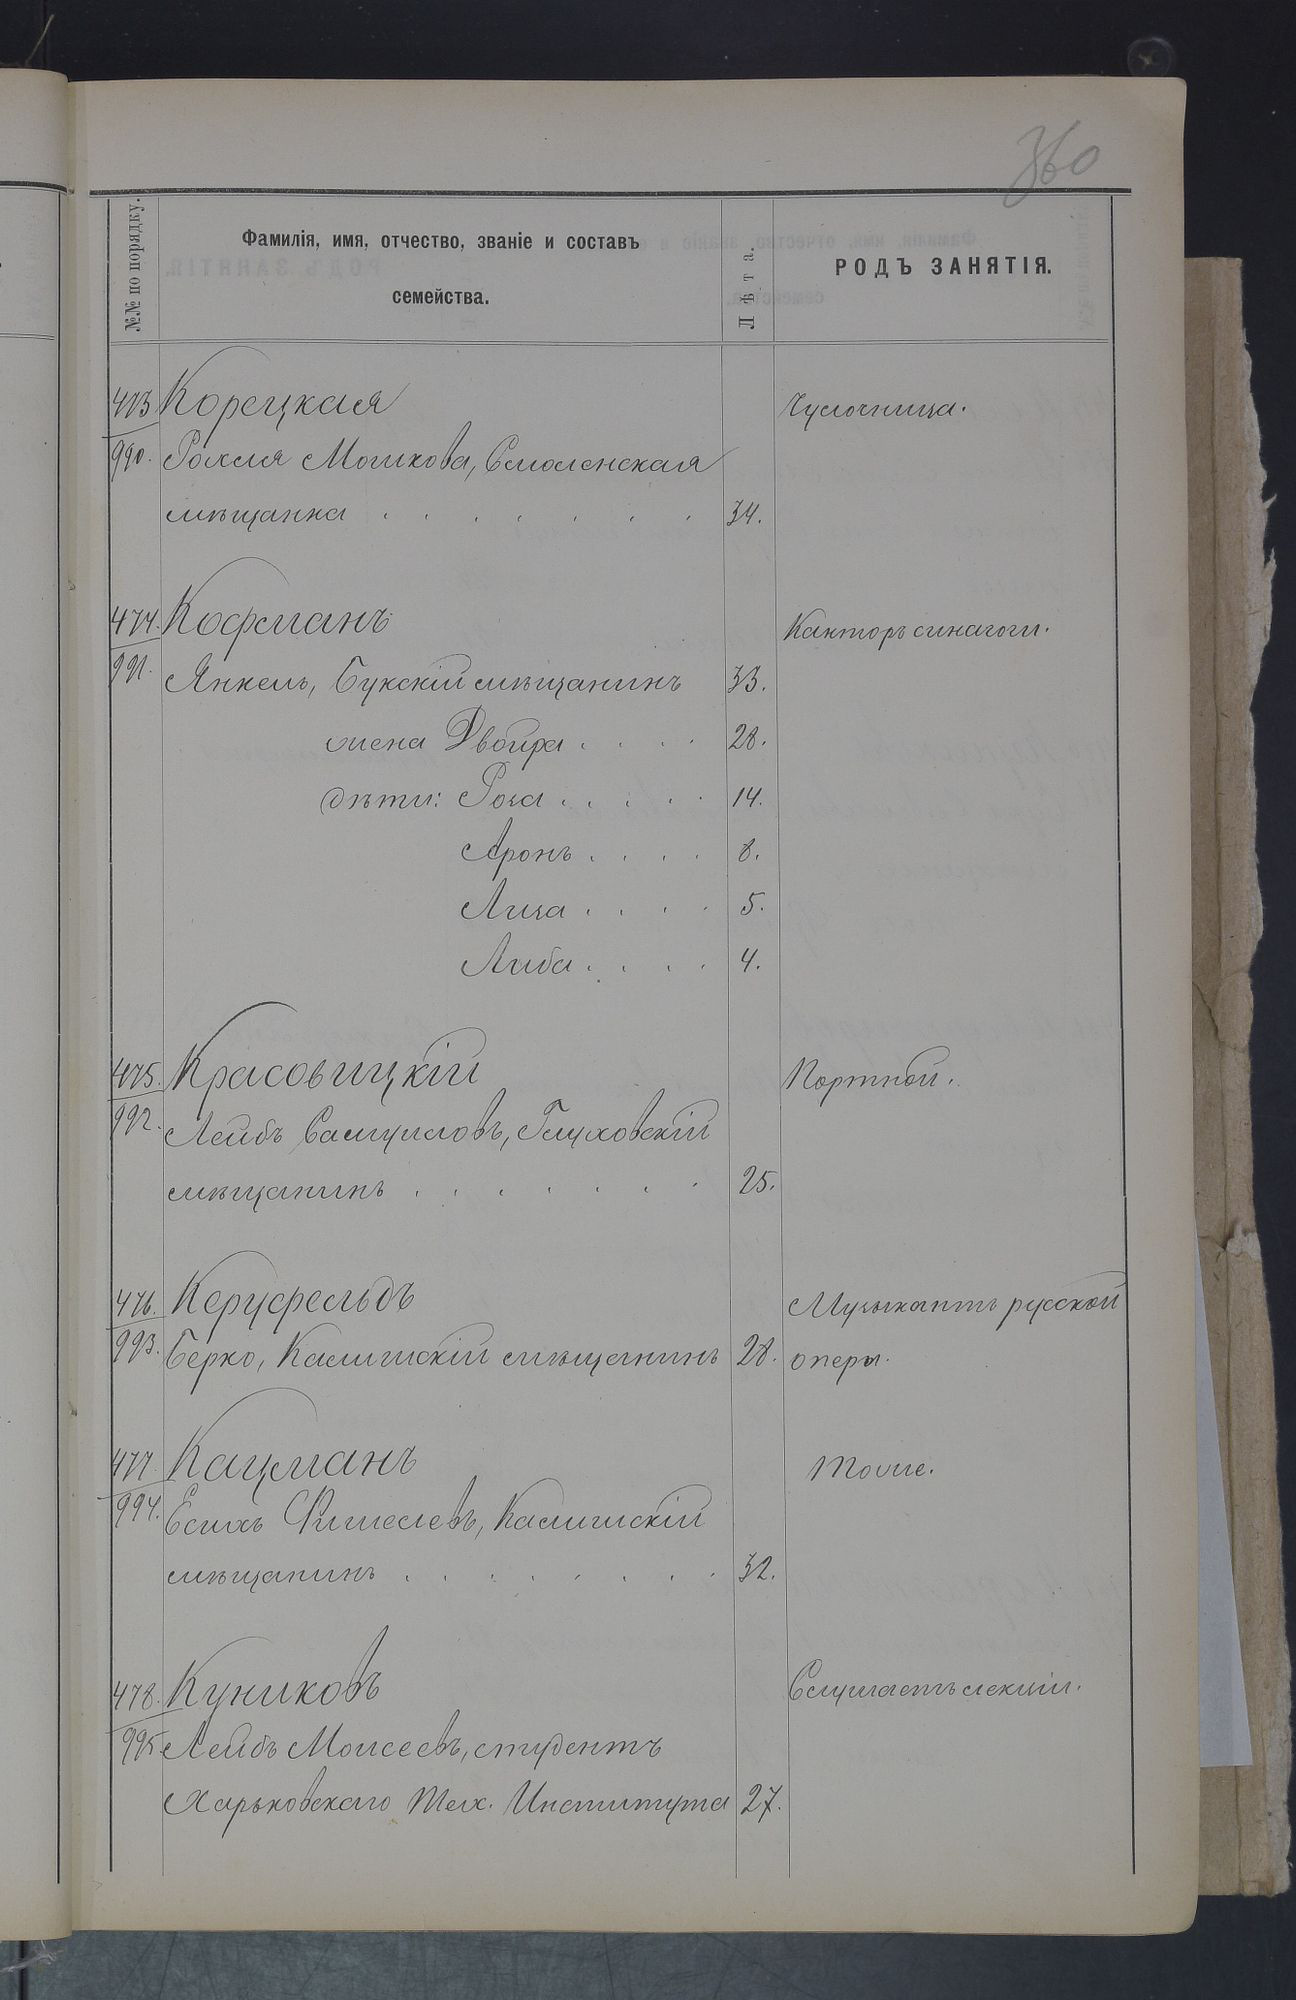 360
№№ по порядку.
Фамилія, имя, отчество, званіе и составъ
семейства.
Лѣта.
РОДЪ ЗАНЯТІЯ.
473 Корецкая Чулочница.
990. Рохля Мошкова, Смоленская
мѣщанка . . . . . . . 34.
474. Кофманъ Канторъ синагоги.
991. Янкель, Букскій мѣщанинъ 33.
жена Двойра . . . . 28.
дѣти: Роза . . . . . 14.
Аронъ . . . . 8.
Лиза . . . . 5.
Либа . . . . 4.
475. Красовицкій Портной.
992. Лейбъ Самуиловъ, Глуховскій
мѣщанинъ . . . . . . . 25.
476. Керцфельдъ Музыкантъ русской
993. Берко, Калишскій мѣщанинъ 28. оперы.
477. Кацманъ Тоже.
994. Есихъ Фишелевъ, Калишскій
мѣщанинъ . . . . . . . . 32.
478. Куниковъ Слушаетъ лекціи.
995 Лейбъ Моисеевъ, студентъ
Харьковскаго Тех. Института 27.